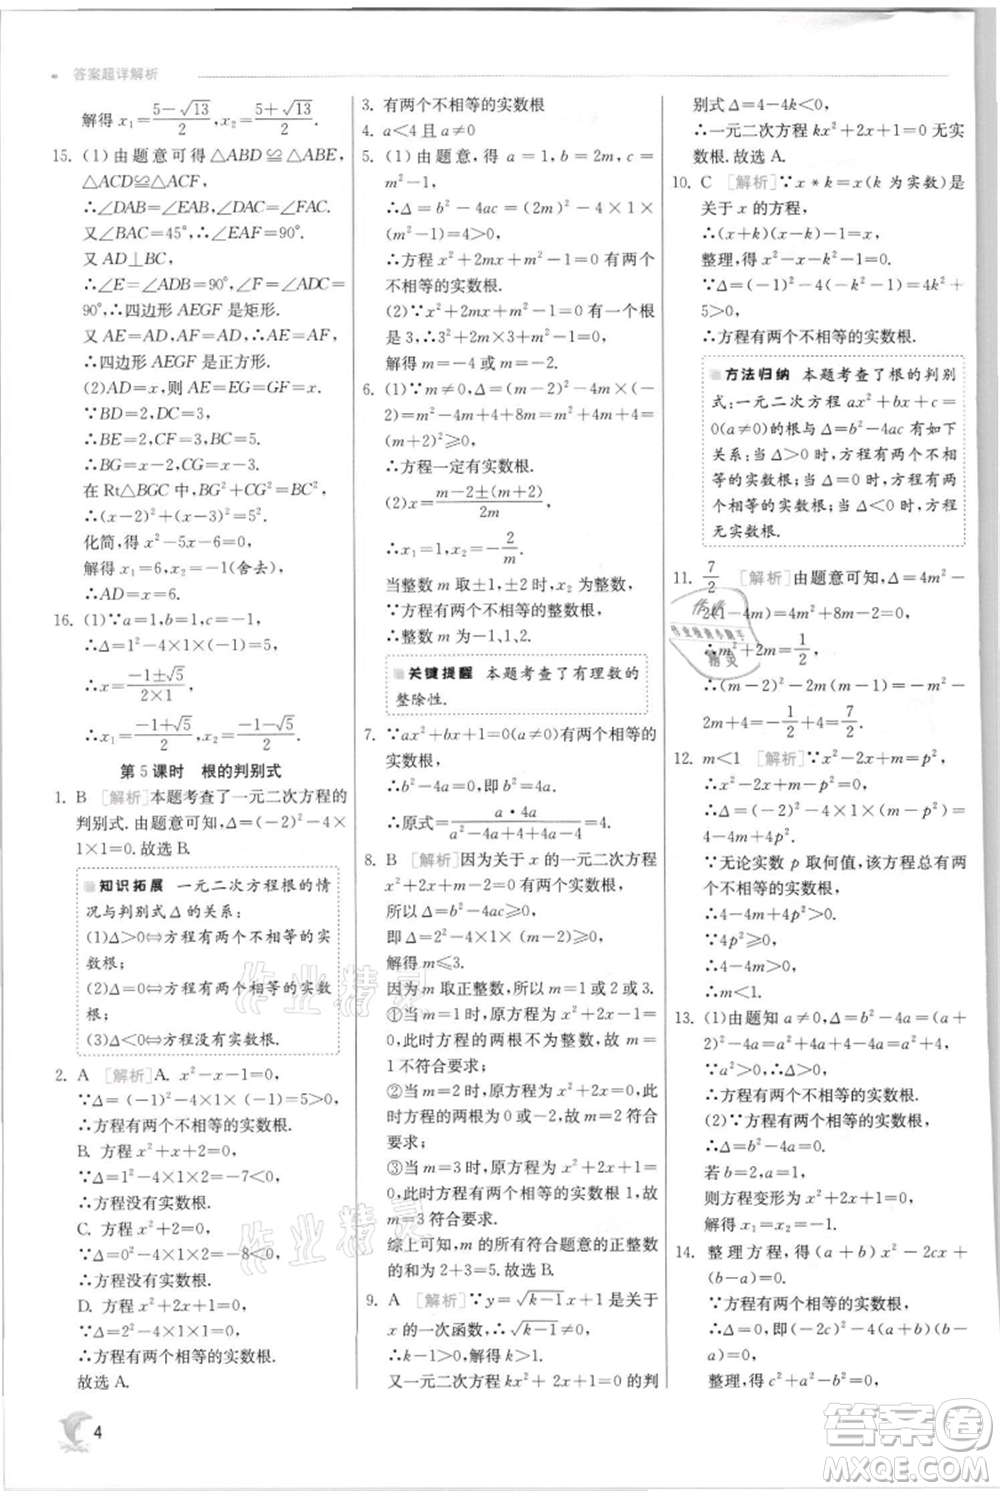 答案超详解析
解得 x₁=(5-√13)/2, x₂=(5+√13)/2.
15. (1)由题意可得△ABD≌△ABE,
△ACD≌△ACF.
∴∠DAB=∠EAB,∠DAC=∠FAC.
又∠BAC=45°,∴∠EAF=90°.
又AD⊥BC,
∴∠E=∠ADB=90°,∠F=∠ADC=90°.
∴四边形 AEGF 是矩形.
又 AE=AD,AF=AD,∴AE=AF.
∴四边形 AEGF 是正方形.
(2)AD=x,则 AE=EG=GF=x.
∵BD=2,DC=3,
∴BE=2,CF=3,BC=5.
∴BG=x-2,CG=x-3.
在 Rt△BGC 中,BG²+CG²=BC²,
∴(x-2)²+(x-3)²=5².
化简,得 x²-5x-6=0.
解得 x₁=6,x₂=-1(舍去),
∴AD=x=6.
16. (1)∵a=1,b=1,c=-1,
∴Δ=1²-4×1×(-1)=5,
∴x=(-1±√5)/(2×1),
∴x₁=(-1+√5)/2, x₂=(-1-√5)/2.
第 5 课时 根的判别式
1. B [解析]本题考查了一元二次方程的
判别式.由题意可知,Δ=(-2)²-4×
1×1=0.故选 B.
知识拓展 一元二次方程根的情
况与判别式 Δ 的关系:
(1)Δ>0⇔方程有两个不相等的实
数根;
(2)Δ=0⇔方程有两个相等的实数
根;
(3)Δ<0⇔方程没有实数根.
2. A [解析]A. x²-x-1=0,
∵Δ=(-1)²-4×1×(-1)=5>0,
∴方程有两个不相等的实数根.
B. 方程 x²+x+2=0,
∵Δ=1²-4×1×2=-7<0,
∴方程没有实数根.
C. 方程 x²+2=0,
∵Δ=0-4×1×2=-8<0,
∴方程没有实数根.
D. 方程 x²-2x+1=0,
∵Δ=(-2)²-4×1×1=0,
∴方程有两个相等的实数根.
故选 A.
4
3. 有两个不相等的实数根
4. a<4 且 a≠0
5. (1)由题意,得 a=1,b=2m,c=
m²-1,
∴Δ=b²-4ac=(2m)²-4×1×
(m²-1)=4>0,
∴方程 x²+2mx+m²-1=0 有两个
不相等的实数根.
(2)∵x²+2mx+m²-1=0 有一个根
是 3,∴3²+2m×3+m²-1=0,
解得 m=-4 或 m=-2.
6. (1)∵m≠0,Δ=(m-2)²-4m×(-
2)=m²-4m+4+8m=m²+4m+4=
(m+2)²≥0,
∴方程一定有实数根.
(2)x=(m-2±(m+2))/2m,
∴x₁=1,x₂=-2/m.
当整数 m 取±1,±2时,x₂ 为整数.
∴整数 m 为-1,1,2.
关键提醒 本题考查了有理数的
整除性.
7. ∵ax²+bx+1=0(a≠0)有两个相等
的实数根,
∴b²-4a=0,即 b²=4a.
∴原式=a·4a/(a²-4a+4+4a-4)=4.
8. B [解析]因为关于 x 的一元二次方程
x²+2x+m-2=0 有两个实数根,
所以 Δ=b²-4ac≥0,
即 Δ=4-4(m-2)≥0,
解得 m≤3.
因为 m 取正整数,所以 m=1,2,3.
①当 m=1 时,原方程为 x²+2x-1=
0,此时方程的两根不为整数,∴m=
1 不符合要求;
②当 m=2 时,原方程为 x²+2x=0,此
时方程的两根为 0 或-2,故 m=2 符合
要求;
③当 m=3 时,原方程为 x²+2x+1=
0,此时方程有两个相等的实数根 1,故
m=3 符合要求.
综上可知,m 的所有符合题意的正整数
的和为 2+3=5.故选 B.
9. A [解析]∵y=√(k-1)x+1 是关于
x 的一次函数,∴√(k-1)≠0,
∴k-1>0,解得 k>1.
又一元二次方程 kx²+2x+1=0 的判
别式 Δ=4-4k<0,
∴一元二次方程 kx²+2x+1=0 无实
数根.故选 A.
10. C [解析]∵x*k=x(k 为实数)是
关于 x 的方程,
∴(x+k)(x-k)-1=x,
整理,得 x²-x-k²-1=0.
∵Δ=(-1)²-4×(-k²-1)=4k²+
5>0,
∴方程有两个不相等的实数根.
方法归纳 本题考查了根的判别
式:一元二次方程 ax²+bx+c=
0(a≠0)的根与 Δ=b²-4ac 有如下
关系:当 Δ>0 时,方程有两个不相
等的实数根;当 Δ=0 时,方程有两
个相等的实数根;当 Δ<0 时,方程
无实数根.
11. 7/2 [解析]由题意可知,Δ=4m²-
2(1-4m)=4m²+8m-2=0,
∴m²+2m=1/2,
∴(m-2)²-2m(m-1)=-m²-
2m+4=-1/2+4=7/2.
12. m<1 [解析]∵x²-2x-p²+
m=0,
∴Δ=(-2)²-4×1×(-p²+m)=
4-4m+4p².
∵无论实数 p 取何值,该方程总有两
个不相等的实数根,
∴4-4m+4p²>0.
∵4p²≥0,
∴4-4m>0,
∴m<1.
13. (1)由题知 a≠0,Δ=b²-4a=(a+
2)²-4a=a²+4a+4-4a=a²+4.
∵a²>0,∴Δ>0.
∴方程有两个不相等的实数根.
(2)∵方程有两个相等的实数根,
∴Δ=b²-4a=0.
若 b=2,a=1,
则方程变形为 x²+2x+1=0,
解得 x₁=x₂=-1.
14. 整理方程,得(a+b)x²-2cx+
(b-a)=0.
∵原方程有两个相等的实数根,
∴Δ=0,即(-2c)²-4(a+b)(b-
a)=0,
整理,得 c²+a²=b²,
作业精灵
作业精灵
作业
作业检查小能手
精灵
答案卷
MXQE.COM